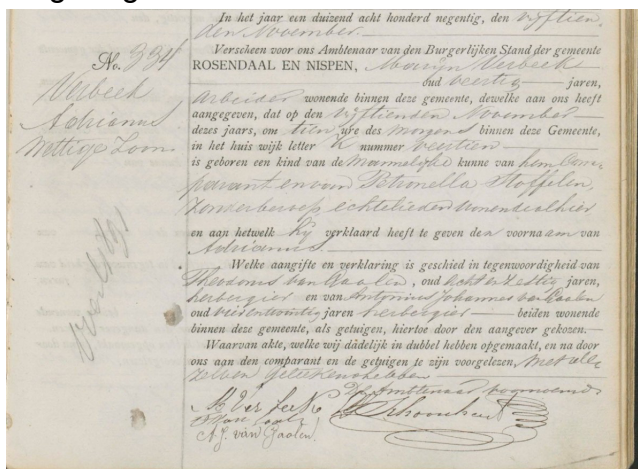 No. 334
Verbeek
Adrianus
Wettige Zoon
In het jaar een duizend acht honderd negentig, den vijftien
den November.
Verscheen voor ons Ambtenaar van den Burgerlijken Stand der gemeente
ROSENDAAL EN NISPEN, Marijn Verbeek
oud veertig jaren,
arbeider wonende binnen deze gemeente, dewelke aan ons heeft
aangegeven, dat op den vijftienden November
dezes jaars, om tien ure des morgens binnen deze Gemeente,
in het huis wijk letter K nummer veertien
is geboren een kind van de Mannelijke kunne van hem Com-
parant en van Petronella Stoffelen,
zonder beroep echtelieden wonende alhier
en aan hetwelk hij verklaard heeft te geven den voornaam van
Adrianus
Welke aangifte en verklaring is geschied in tegenwoordigheid van
Theodorus van Gaalen, oud acht en zestig jaren,
herbergier en van Antonius Johannes van Gaalen
oud vier en twintig jaren herbergier beiden wonende
binnen deze gemeente, als getuigen, hiertoe door den aangever gekozen.
Waarvan akte, welke wij dadelijk in dubbel hebben opgemaakt, en na door
ons aan den comparant en de getuigen te zijn voorgelezen, met alle
zelven geteekend hebben
De Ambtenaar voornoemd
M. Verbeek
A.J. van Gaalen